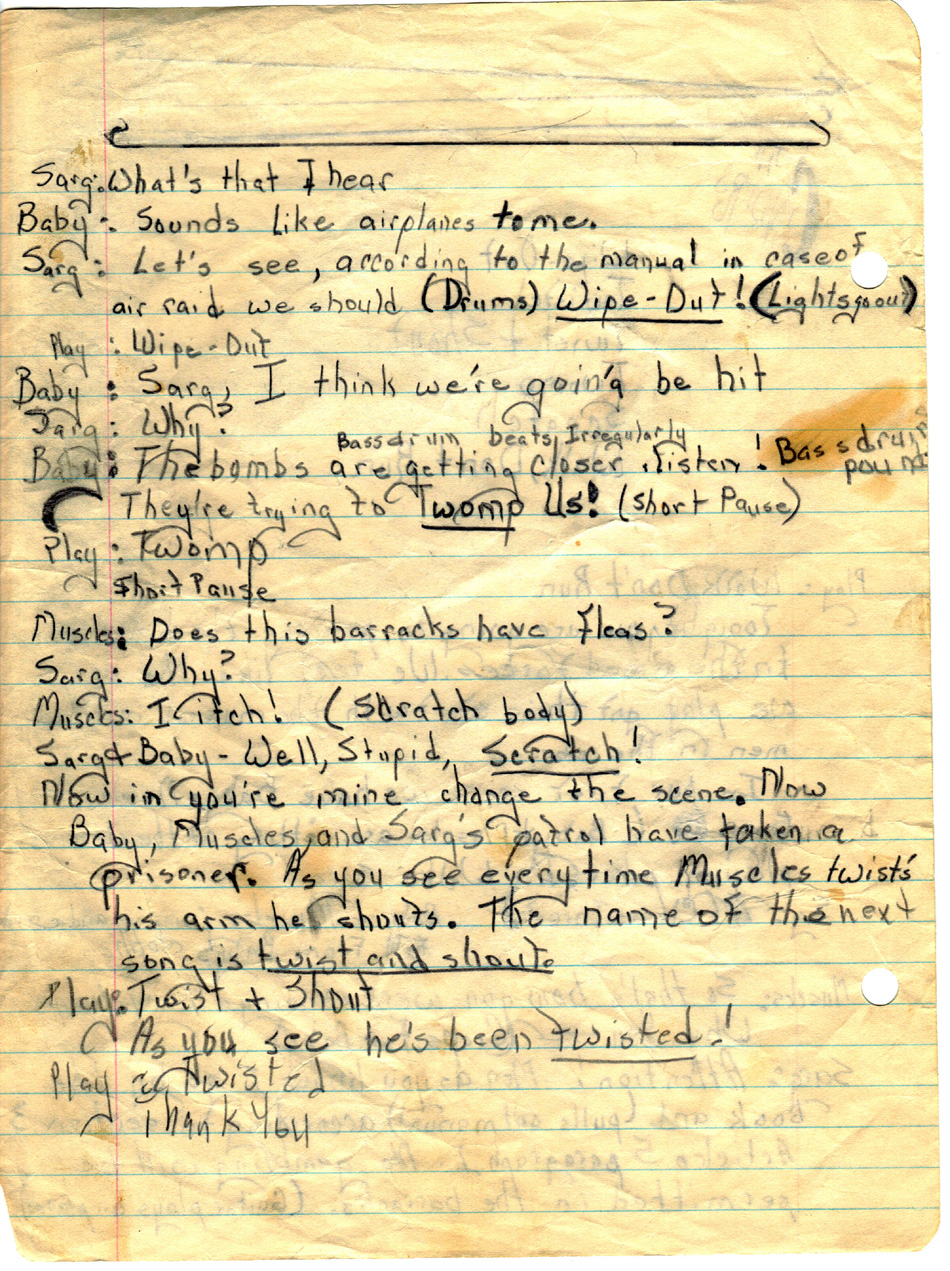 Sarg: What's that I hear
Baby: Sounds Like airplanes to me.
Sarg: Let's see, according to the manual in case of
air raid we should (Drums) Wipe-Out! (Lights go out)
Play: Wipe-Out
Baby: Sarg, I think we're goin'g be hit
Sarg: Why?
Bass drum beats Irregularly
Baby: The bombs are getting closer, listen! Bass drum
pound
They're trying to Twomp Us! (Short Pause)
Play: Twomp
Short Pause
Muscles: Does this barracks have fleas?
Sarg: Why?
Muscles: I itch! (Scratch body)
Sarg & Baby - Well, Stupid, Scratch!
Now in you're mine change the scene. Now
Baby, Muscles, and Sarg's patrol have taken a
prisoner. As you see every time Muscles twist's
his arm he shouts. The name of the next
song is twist and shout.
Play: Twist + Shout
As you see he's been twisted!
Play: Twisted
Thank You